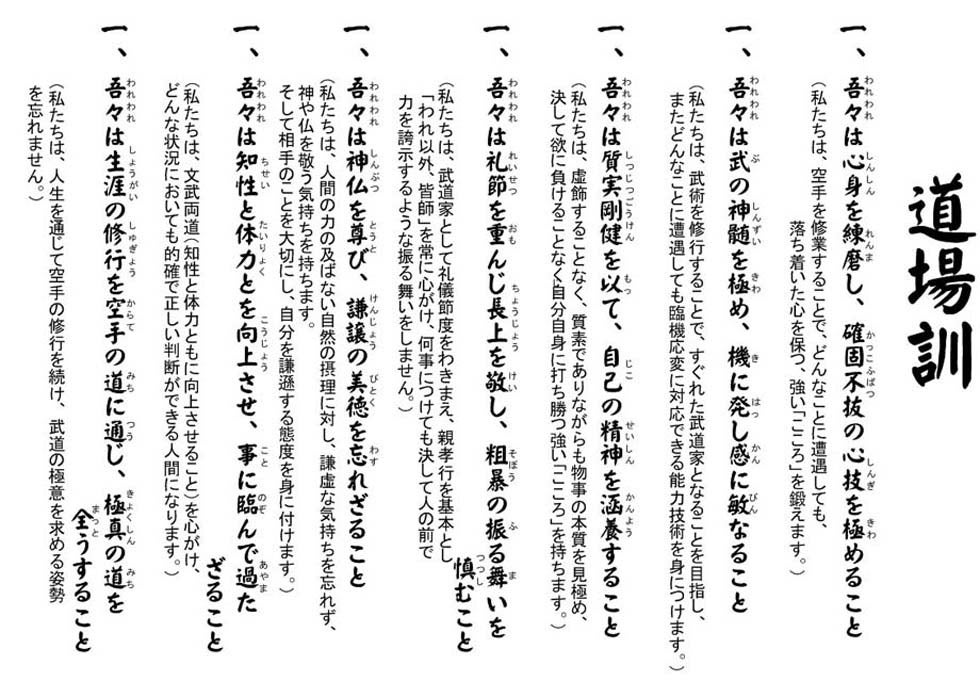 道場訓
一、吾々は心身を練磨し、確固不抜の心技を極めること
（私たちは、空手を修業することで、どんなことに遭遇しても、
落ち着いた心を保つ、強い「こころ」を鍛えます。）
一、吾々は武の神髄を極め、機に発し感に敏なること
（私たちは、武術を修行することで、すぐれた武道家となることを目指し、
またどんなことに遭遇しても臨機応変に対応できる能力技術を身につけます。）
一、吾々は質実剛健を以て、自己の精神を涵養すること
（私たちは、虚飾することなく、質素でありながらも物事の本質を見極め、
決して欲に負けることなく自分自身に打ち勝つ強い「こころ」を持ちます。）
一、吾々は礼節を重んじ長上を敬し、粗暴の振る舞いを
慎むこと
（私たちは、武道家として礼儀節度をわきまえ、親孝行を基本とし
「われ以外、皆師」を常に心がけ、何事につけても決して人の前で
力を誇示するような振る舞いをしません。）
一、吾々は神仏を尊び、謙譲の美徳を忘れざること
（私たちは、人間の力の及ばない自然の摂理に対し、謙虚な気持ちを忘れず、
神や仏を敬う気持ちを持ちます。
そして相手のことを大切にし、自分を謙遜する態度を身に付けます。）
一、吾々は知性と体力とを向上させ、事に臨んで過た
ざること
（私たちは、文武両道（知性と体力ともに向上させること）を心がけ、
どんな状況においても的確で正しい判断ができる人間になります。）
一、吾々は生涯の修行を空手の道に通じ、極真の道を
全うすること
（私たちは、人生を通じて空手の修行を続け、武道の極意を求める姿勢
を忘れません。）